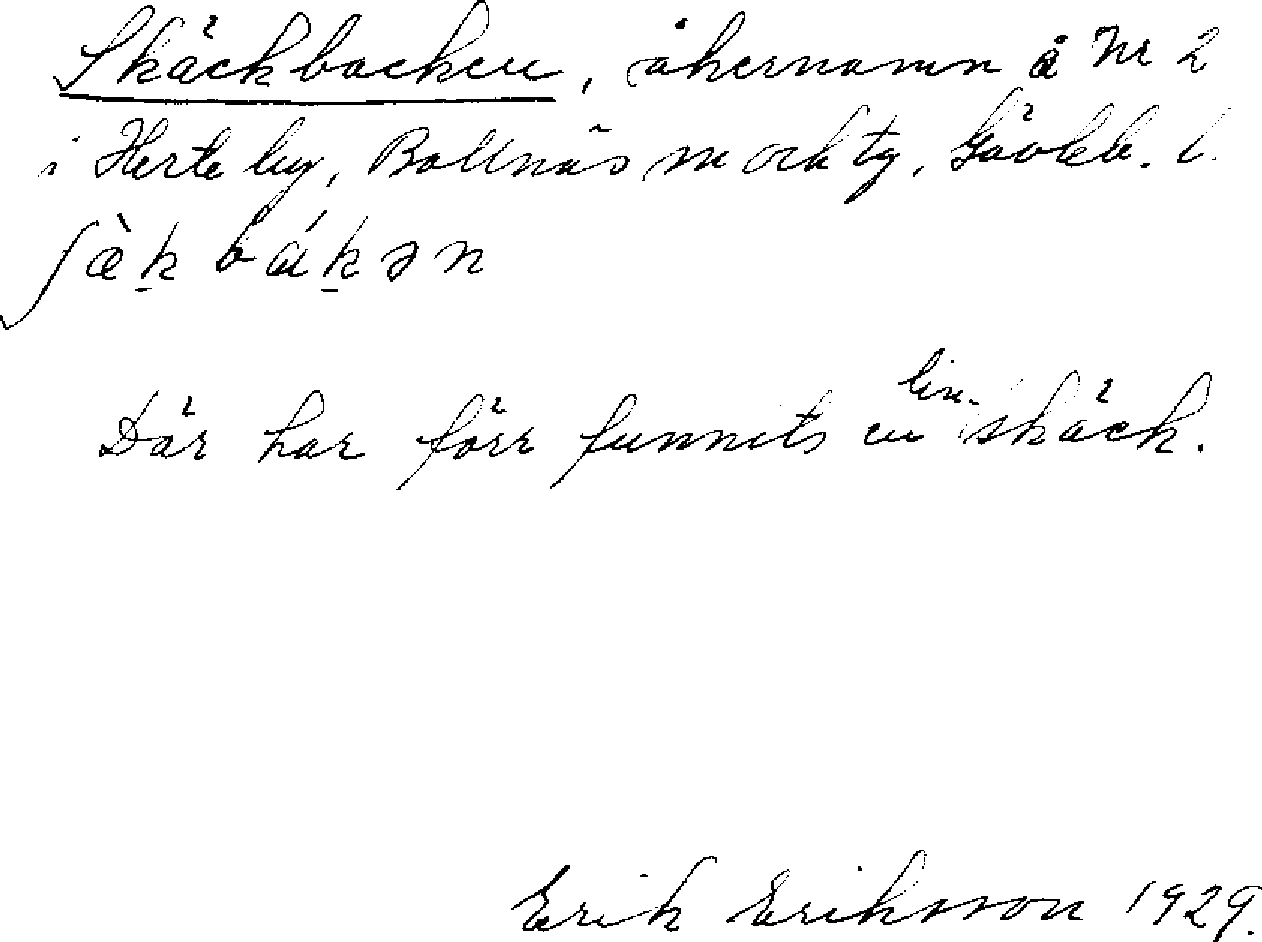 Skäckbacken, åkernamn å Nr 2
i Herte by, Bollnäs sn och tg, Gävleb. l.
ʃæ̀k bákən
Där har förr funnits en lin-skäck.
Erik Eriksson 1929.